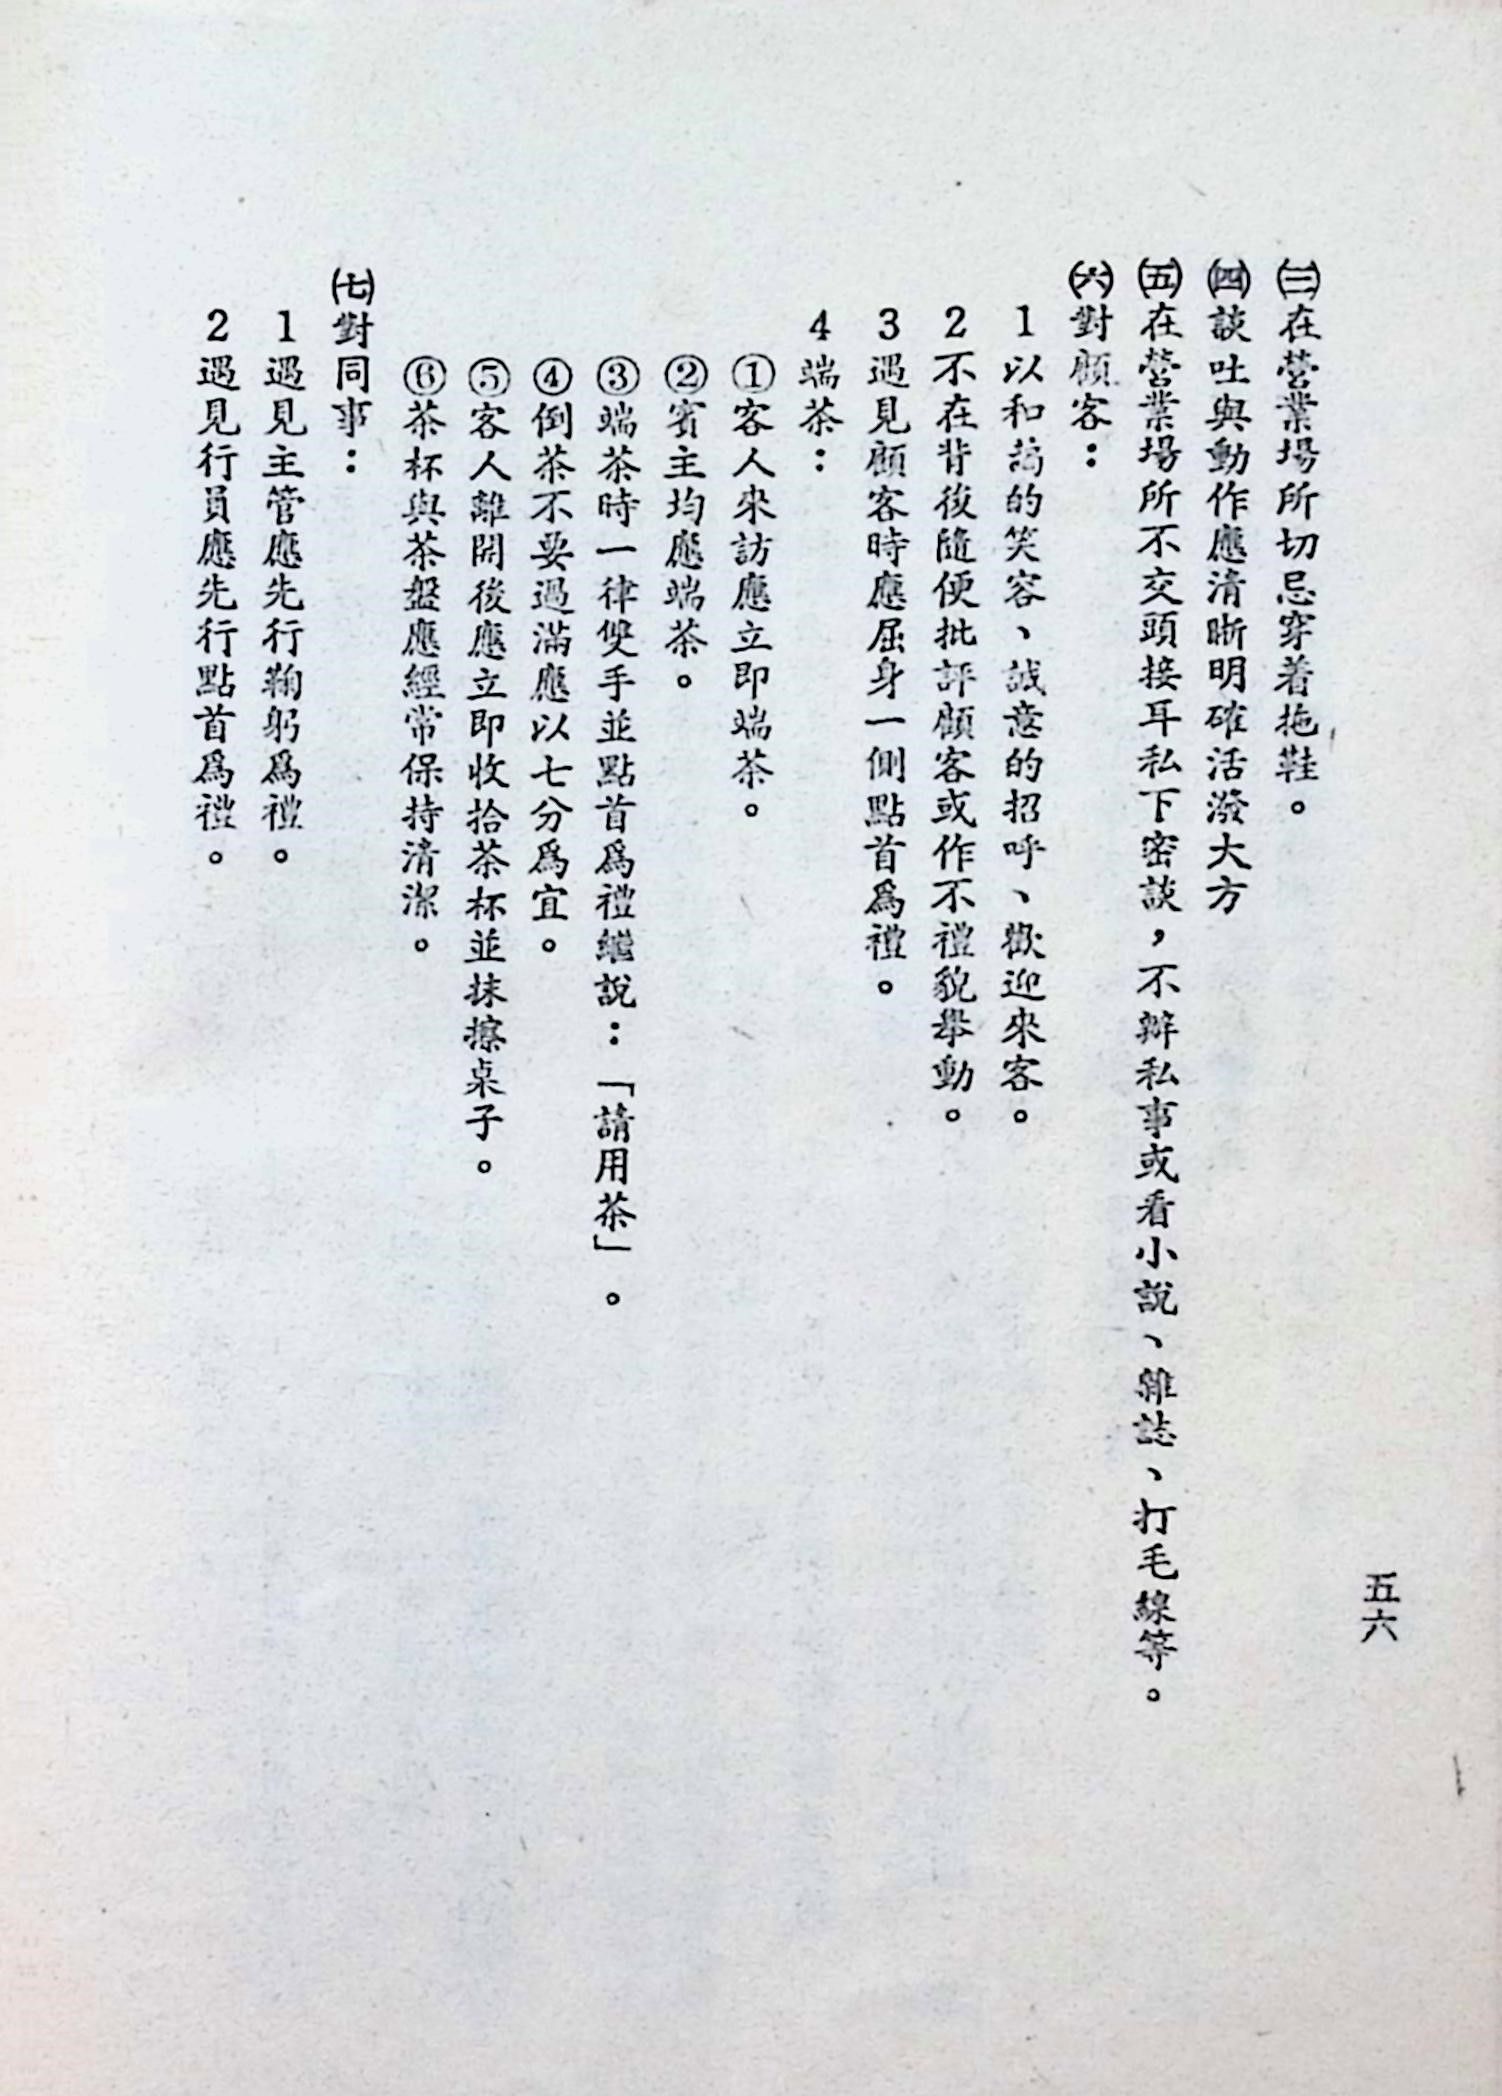 五六
㈢在營業場所切忌穿着拖鞋。
㈣談吐與動作應清晰明確活潑大方
㈤在營業場所不交頭接耳私下密談，不辦私事或看小說、雜誌、打毛線等。
㈥對顧客：
1以和藹的笑容、誠意的招呼、歡迎來客。
2不在背後隨便批評顧客或作不禮貌舉動。
3遇見顧客時應屈身一側點首爲禮。
4端茶：
①客人來訪應立即端茶。
②賓主均應端茶。
③端茶時一律雙手並點首爲禮繼說：「請用茶」。
④倒茶不要過滿應以七分爲宜。
⑤客人離開後應立即收拾茶杯並抹擦桌子。
⑥茶杯與茶盤應經常保持清潔。
㈦對同事：
1遇見主管應先行鞠躬爲禮。
2遇見行員應先行點首爲禮。